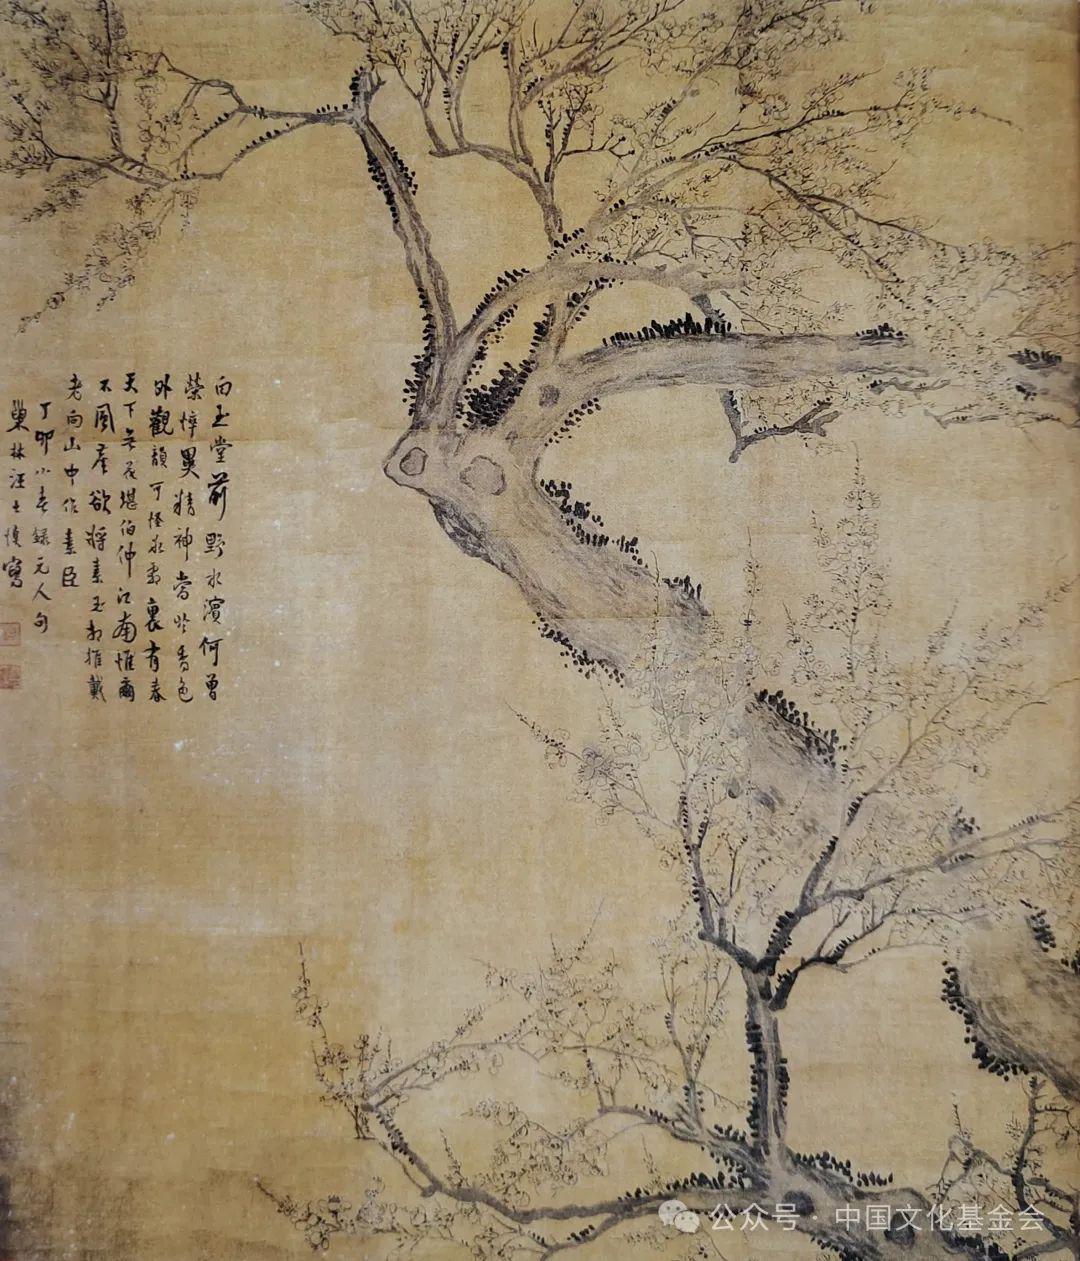 白玉堂前野水濱何曾
榮悴異精神當於香色
外觀韻可怪冰霜裏有春
天下無花堪伯仲江南惟爾
不風塵欲將素王相推戴
老向山中作素臣
丁卯小春録元人句
巢林汪士慎寫
公众号 · 中国文化基金会